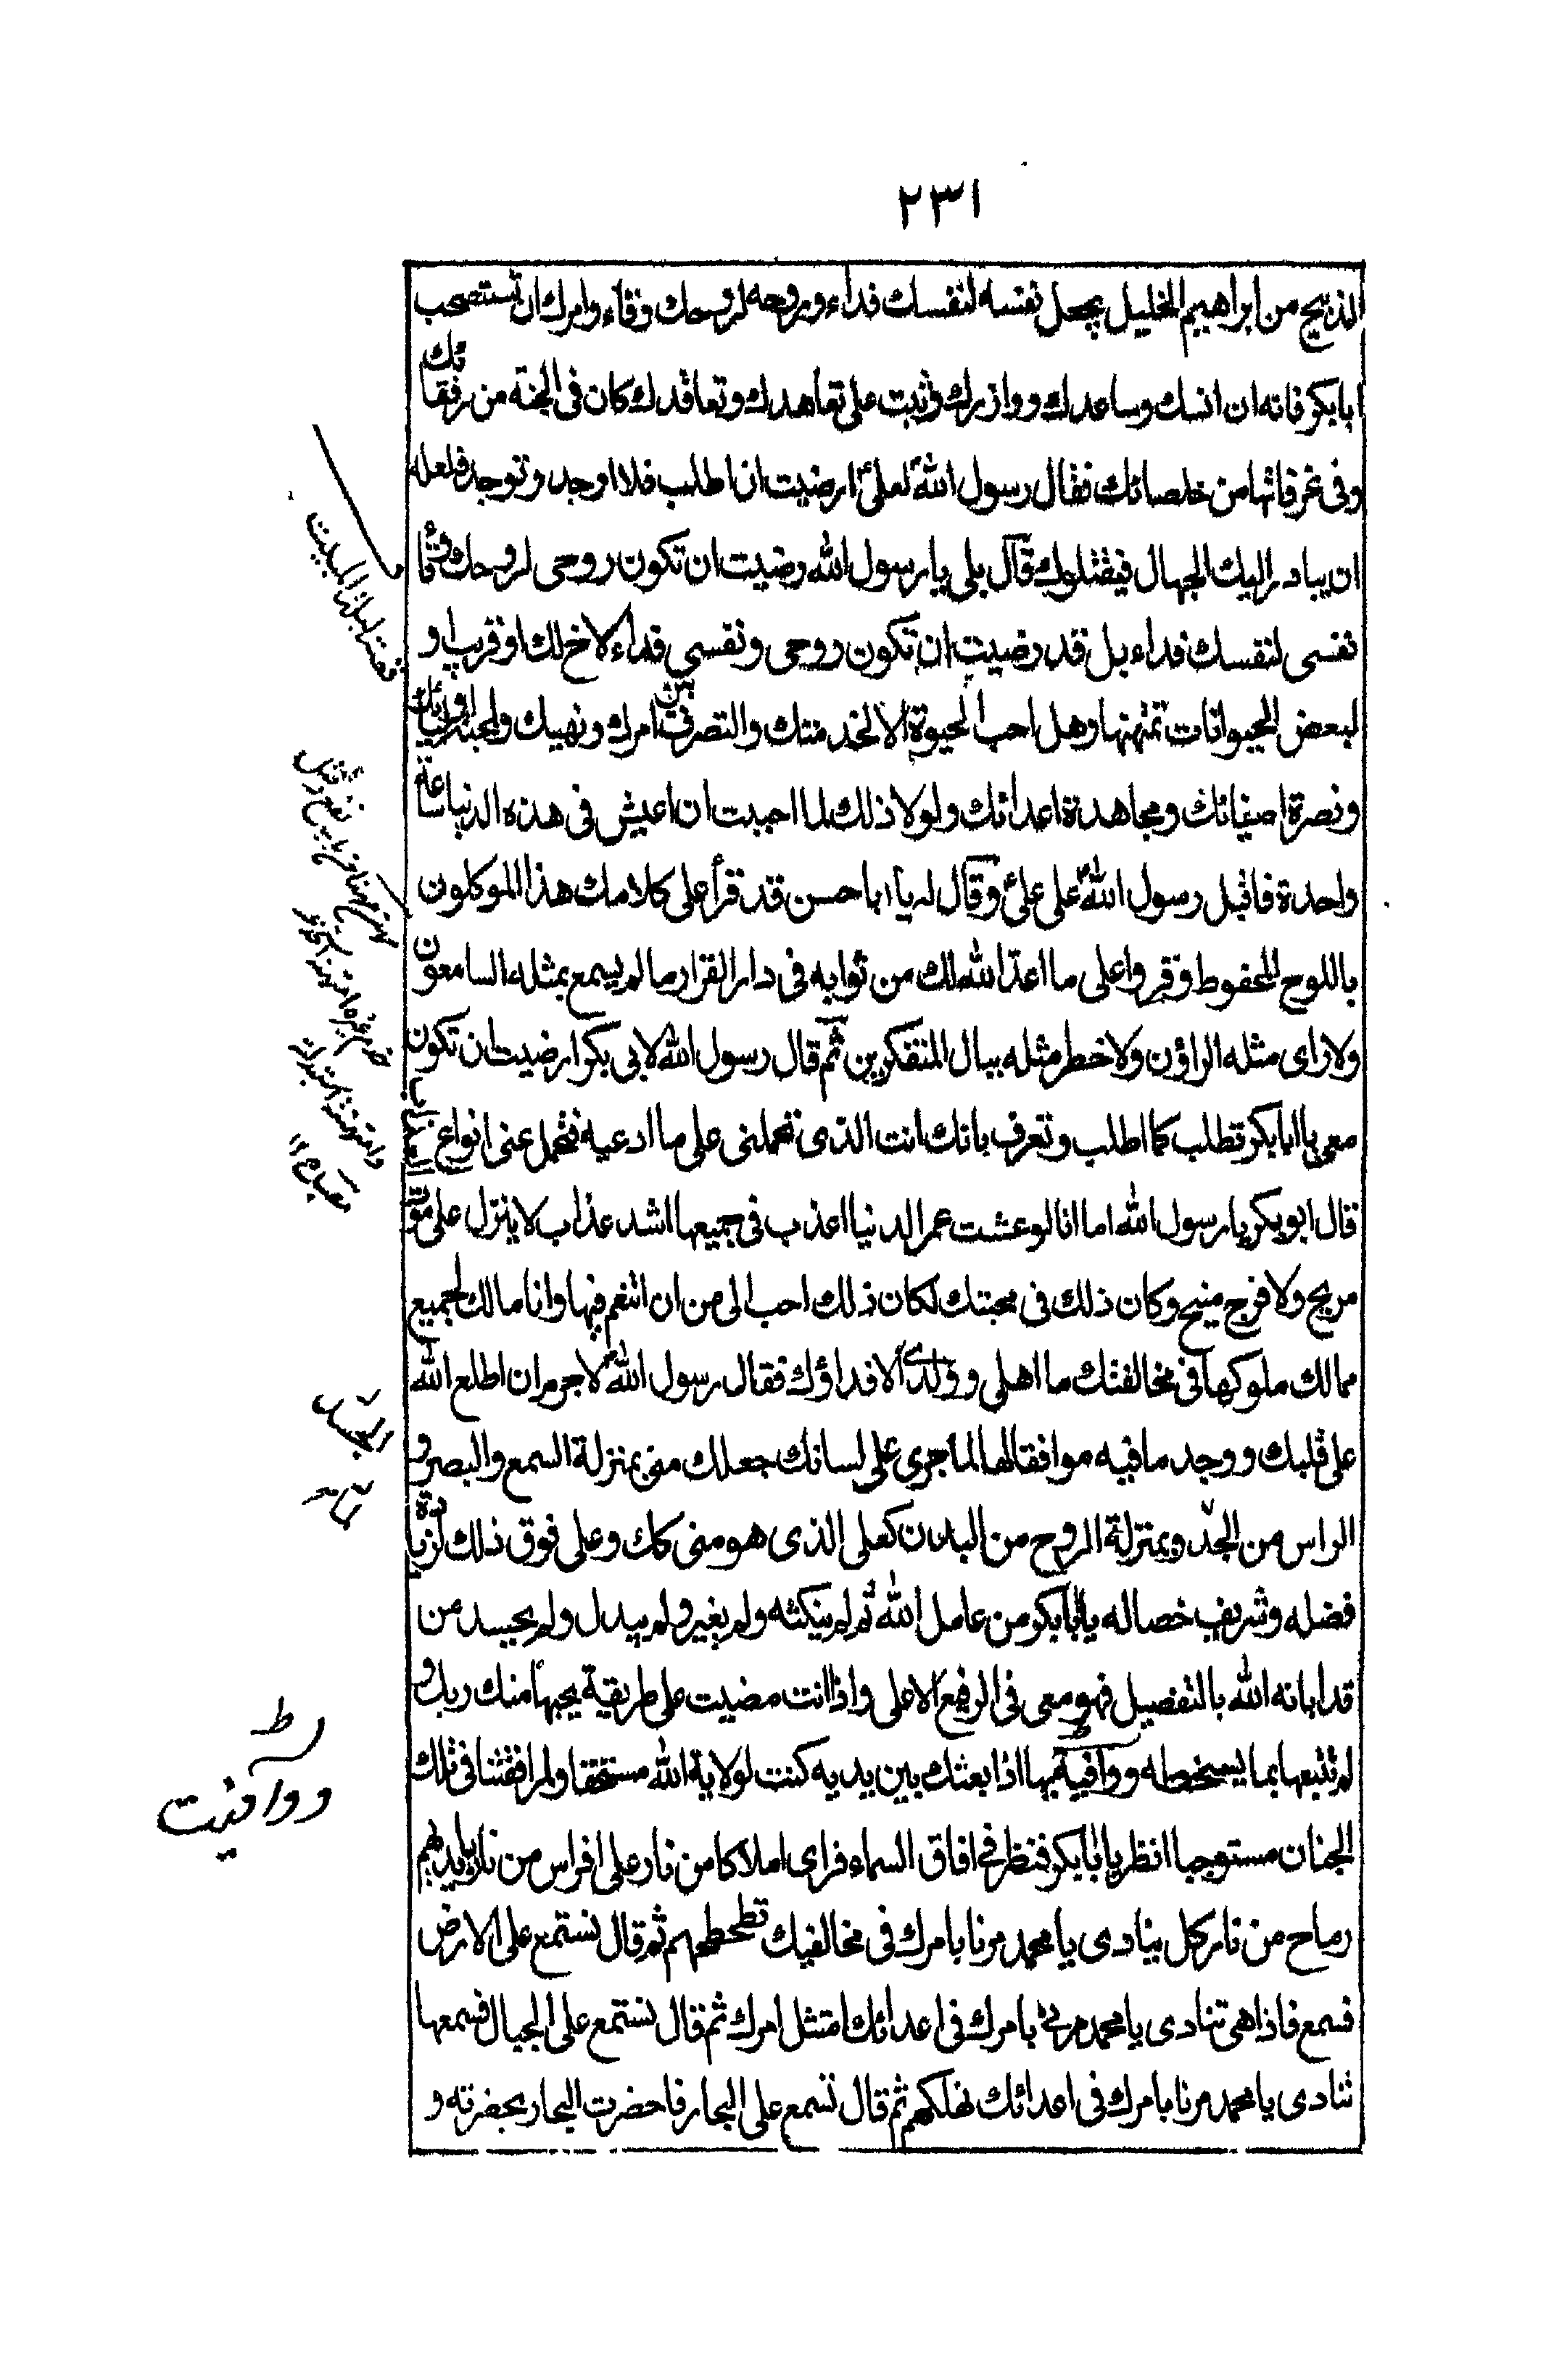 ٢٣١
الذبيح من ابراهيم الخليل يجعل نفسه لنفسك فداء وروحه لروحك وقاء وامرك ان تستصحب
ابابكر فانه ان انسك وساعدك ووازرك وثبت على تعاهدك وتعاقدك كان فى الجنة من رفقائك
وفى غرفاتها من خلصائك فقال رسول الله لعلى ارضيت ان اطلب فلا اوجد وتوجد فلعله
ان يبادر اليك الجهال فيقتلوك قال بلى يا رسول الله رضيت ان تكون روحى لروحك وقاء
نفسى لنفسك فداء بل قد رضيت ان تكون روحى ونفسى فداء لاخ لك او قريب او
لبعض الحيوانات تمتهنها وهل احب الحيوة الا لخدمتك والتصرف بين امرك ونهيك ولمحبة اوليائك
ونصرة اصفيائك ومجاهدة اعدائك ولولا ذلك لما احببت ان اعيش فى هذه الدنيا ساعة
واحدة فاقبل رسول الله على على وقال له يا ابا حسن قد قرأ على كلامك هذا الموكلون
باللوح المحفوظ وقرءوا على ما اعد الله لك من ثوابه فى دار القرار ما لم يسمع بمثله السامعون
ولا راى مثله الراؤن ولا خطر مثله ببال المتفكرين ثم قال رسول الله لابى بكر ارضيت ان تكون
معى يا ابابكر تطلب كما اطلب وتعرف بانك انت الذى تحملنى على ما ادعيه فتحمل عنى انواع العذاب
قال ابو بكر يا رسول الله اما انا لو عشت عمر الدنيا اعذب فى جميعها اشد عذاب لا ينزل على موت
مريح ولا فرج منيح وكان ذلك فى محبتك لكان ذلك احب الى من ان اتنعم فيها وانا مالك لجميع
ممالك ملوكها فى مخالفتك ما اهلى وولدى الا فداؤك فقال رسول الله لا جرم ان اطلع الله
على قلبك ووجد ما فيه موافقا لها لما جرى على لسانك جعلك منى بمنزلة السمع والبصر و
الراس من الجسد وبمنزلة الروح من البدن كعلى الذى هو منى كك وعلى فوق ذلك لزيادة
فضله وشريف خصاله يا ابابكر من عامل الله ثم لم ينكثه ولم يغير ولم يبدل ولم يحسد من
قد ابانه الله بالتفضيل فهو معى فى الرفيع الاعلى واذا انت مضيت على طريقية يحبها منك ربك و
لم تتبعها بما يسخطه ووافيته بها اذا بعثك بين يديه كنت لولاية الله مستحقا ولمرافقتنا فى تلك
الجنان مستوجبا انظر يا ابابكر فنظر فى افاق السماء فراى املاكا من نار على افراس من نار بايديهم
رماح من نار كل ينادى يا محمد مرنا بامرك فى مخالفيك نطحطحهم ثم قال تستمع على الارض
فسمع فاذا هى تنادى يا محمد مرنى بامرك فى اعدائك امتثل امرك ثم قال تستمع على الجبال فسمعها
تنادى يا محمد مرنا بامرك فى اعدائك نهلكهم ثم قال تسمع على البحار فاحضرت البحار بحضرته و
قصة ليلة المبيت
ووافيت